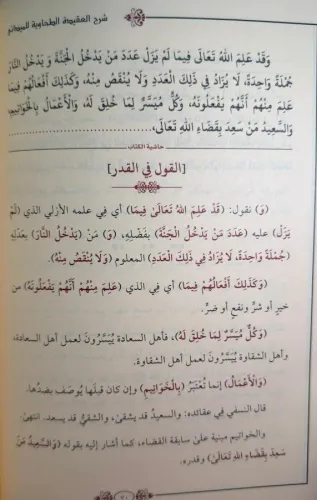 شرح العقيدة الطحاوية الميداني
وَقَدْ عَلِمَ اللهُ تَعَالَى فِيمَا لَمْ يَزَلْ عَدَدَ مَنْ يَدْخُلُ الْجَنَّةَ وَ يَدْخُلُ النَّارَ
جُمْلَةً وَاحِدَةً، لَا يُزَادُ فِي ذَلِكَ الْعَدَدِ وَلَا يُنْقَصُ مِنْهُ، وَكَذَلِكَ أَفْعَالُهُمْ فِيمَا
عَلِمَ مِنْهُمْ أَنَّهُمْ يَفْعَلُونَهُ، وَكُلٌّ مُيَسَّرٌ لِمَا خُلِقَ لَهُ، وَالْأَعْمَالُ بِالْخَوَاتِيمِ،
وَالسَّعِيدُ مَنْ سَعِدَ بِقَضَاءِ اللهِ تَعَالَى،
حاشية الكتاب
[القول في القدر]
(وَ) نقول: (قَدْ عَلِمَ اللهُ تَعَالَىٰ فِيمَا) أي في علمه الأزلي الذي (لَمْ
يَزَلْ) عليه (عَدَدَ مَنْ يَدْخُلُ الْجَنَّةَ) بفَضْلِهِ، (وَ) مَنْ (يَدْخُلُ النَّارَ) بعَدْلِهِ
(جُمْلَةً وَاحِدَةً، لَا يُزَادُ فِي ذَلِكَ الْعَدَدِ) المعلوم (وَلَا يُنْقَصُ مِنْهُ).
(وَكَذَلِكَ أَفْعَالُهُمْ فِيمَا) أي في الذي (عَلِمَ مِنْهُمْ أَنَّهُمْ يَفْعَلُونَهُ) من
خيرٍ أو شرٍّ ونفعٍ أو ضرٍّ.
(وَكُلٌّ مُيَسَّرٌ لِمَا خُلِقَ لَهُ)، فأهل السعادة يُيَسَّرُونَ لعمل أهل السعادة،
وأهل الشقاوة يُيَسَّرُونَ لعمل أهل الشقاوة.
(وَالْأَعْمَالُ) إنما تُعْتَبَرُ (بِالْخَوَاتِيمِ) وإن كان قبلَها يُوصَف بضدِّها.
قال النسفي في عقائده: والسعيدُ قد يشقىٰ، والشقيُّ قد يسعد. انتهىٰ
والخواتيم مبنية علىٰ سابقة القضاء، كما أشار إليه بقوله (وَالسَّعِيدُ مَنْ
سَعِدَ بِقَضَاءِ اللهِ تَعَالَىٰ) وقدره.